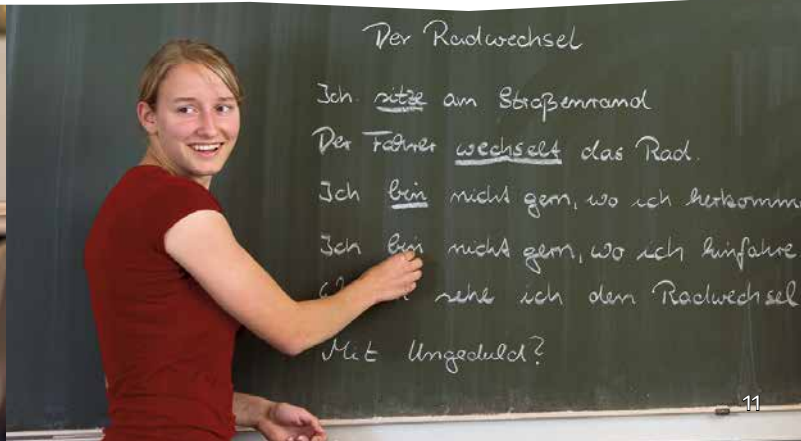 Der Radwechsel
Ich sitze am Straßenrand
Der Fahrer wechselt das Rad.
Ich bin nicht gern, wo ich herkomm
Ich bin nicht gern, wo ich hinfahre
sehe ich den Radwechsel
Mit Ungeduld?
11